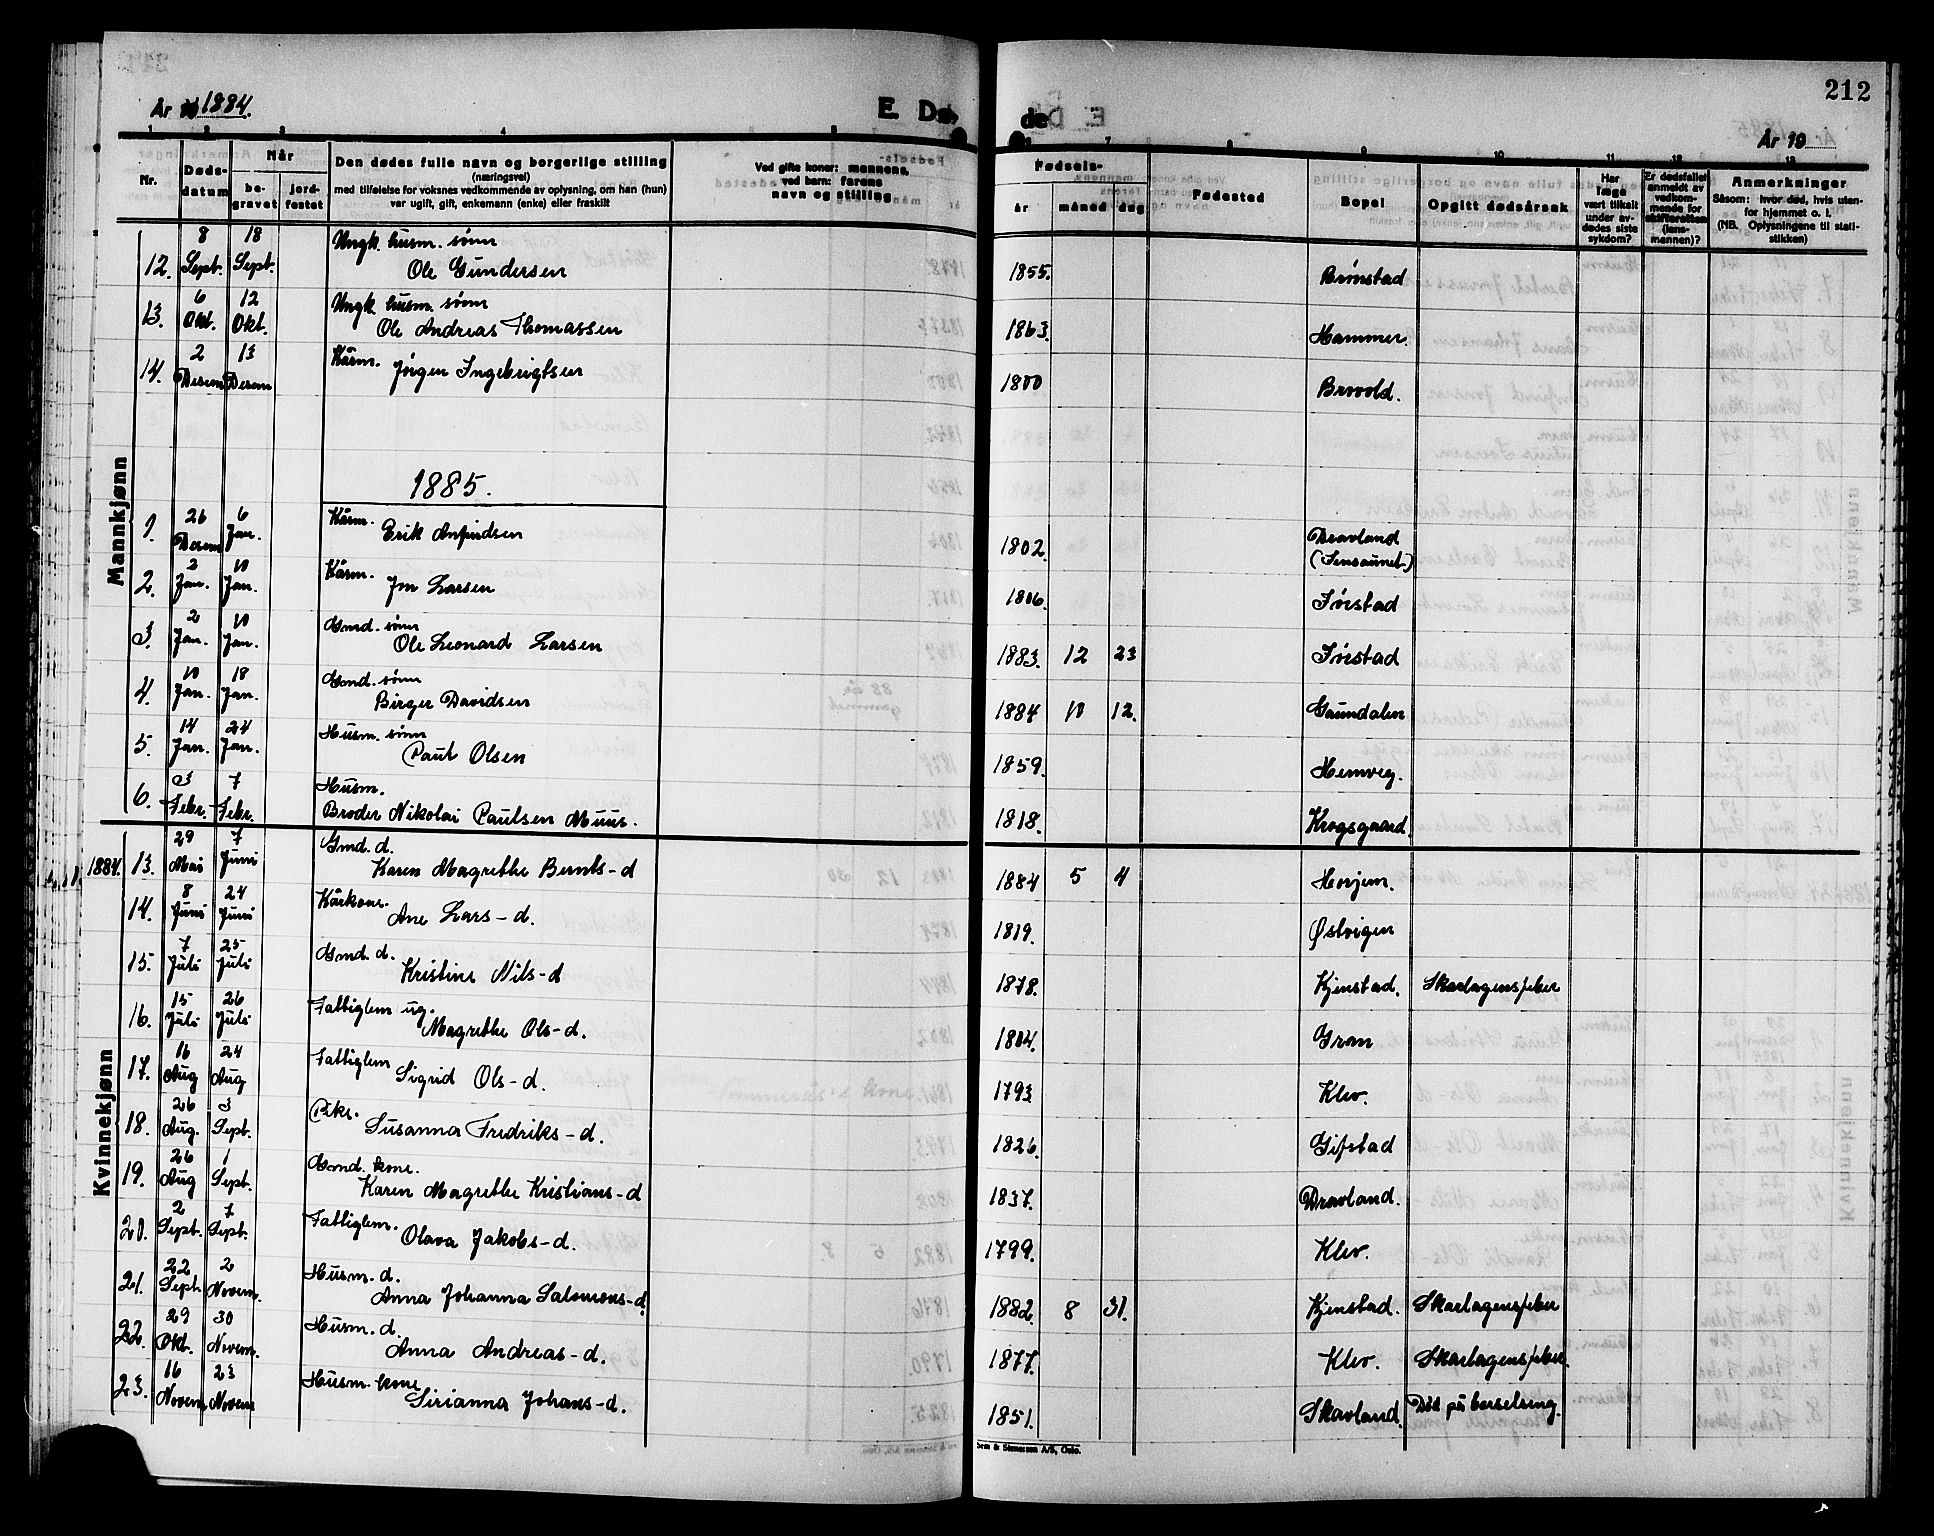 212
År 1884.
E. Dø de
År 19
1 2 3 4 5 7 8 9 10 11 12 13
Nr.
Døds-datum
Når
be-gravet
jord-festet
Den dødes fulle navn og borgerlige stilling
(næringsvei)
med tilføielse for voksnes vedkommende av oplysning, om han (hun)
var ugift, gift, enkemann (enke) eller fraskilt
Ved gifte koner: mannens,
ved barn: farens
navn og stilling
Fødsels-
år måned dag
Fødested
Bopel
Opgitt dødsårsak
Har læge vært tilkalt under av-dødes siste sykdom?
Er dødsfallet anmeldt av vedkom-mende for skifteretten (lens-mannen)?
Anmerkninger
Såsom: hvor død, hvis uten-
for hjemmet o. l.
(NB. Oplysningene til stati-
stikken)
Mannkjønn
12. 8 Sept. 18 Sept. Ungk. husm. sønn
Ole Gundersen 1855. Brønstad
13. 6 Okt. 12 Okt. Ungk. husm. sønn
Ole Andreas Thomassen 1863. Hammer.
14. 2 Desem 13 Desem Kårm. Jørgen Ingebrigtsen 1800 Brovold.
1885.
1. 26 Desem 6 Jan. Kårm. Erik Anfindsen 1802. Dravland
(Finsaunet)
2. 2 Jan. 10 Jan. Kårm. Jon Larsen 1806. Ivistad
3. 2 Jan. 10 Jan. Gmd. sønn
Ole Leonard Larsen 1883. 12 23 Ivistad
4. 10 Jan. 18 Jan. Gmd. sønn
Birger Davidsen 1884 10 12. Gaundalen
5. 14 Jan. 24 Jan. Husm. sønn
Paul Olsen 1859. Hemveg.
6. 3 Febr. 7 Febr. Husm.
Broder Nikolai Paulsen Muus. 1818. Krogsgaard.
Kvinnekjønn
1884. 13. 29 Mai 7 Juni Gmd. d.
Karen Magrethe Bernts-d 1884 5 4 Hojem.
14. 8 Juni 24 Juni Kårkone.
Ane Lars-d. 1819. Østvigen
15. 7 Juli 25 Juli Gmd. d.
Kristine Nils-d 1878. Kjenstad. Skarlagensfeber
16. 15 Juli 26 Juli Fattiglem ug.
Magrethe Ols-d. 1804. Gran
17. 16 Aug 24 Aug Fattiglem
Sigrid Ols-d. 1793 Klev.
18. 26 Aug. 3 Sept. Pike.
Susanna Fredriks-d. 1826. Gifstad
19. 26 Aug 1 Sept. Gmd. kone.
Karen Magrethe Kristians-d 1837. Dravland.
20. 2 Sept. 7 Sept. Fattiglem.
Olava Jakobs-d. 1799. Klev.
21. 22 Sept 2 Novem. Husm. d.
Anna Johanna Salomons-d. 1882. 8 31. Kjenstad. Skarlagensfeber
22. 29 Okt. 30 Novem. Husm. d.
Anna Andreas-d. 1877. Klev. Skarlagensfeber.
23. 16 Novem 23 Novem Husm. kone
Sirianna Johans-d. 1851. Skavland. Død på barselseng.
Sem & Stenersen A/S, Oslo.